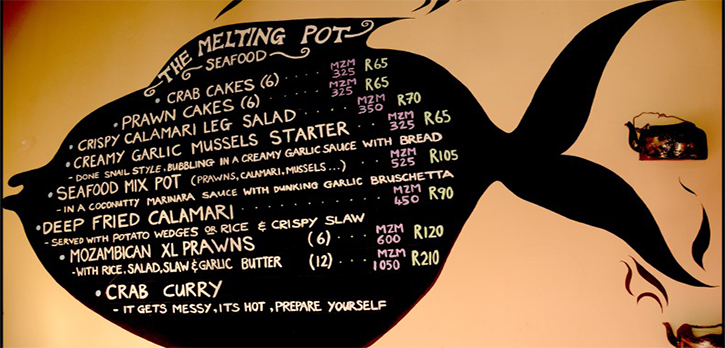 THE MELTING POT
SEAFOOD
• CRAB CAKES (6) ..... MZM 325 R65
• PRAWN CAKES (6) ..... MZM 325 R65
CRISPY CALAMARI LEG SALAD ..... MZM 350 R70
• CREAMY GARLIC MUSSELS STARTER ... MZM 325 R65
- DONE SNAIL STYLE, BUBBLING IN A CREAMY GARLIC SAUCE WITH BREAD
• SEAFOOD MIX POT (PRAWNS, CALAMARI, MUSSELS...) ... MZM 525 R105
- IN A COCONUTTY MARINARA SAUCE WITH DUNKING GARLIC BRUSCHETTA
• DEEP FRIED CALAMARI .......... MZM 450 R90
- SERVED WITH POTATO WEDGES OR RICE & CRISPY SLAW
• MOZAMBICAN XL PRAWNS (6) ... MZM 600 R120
- WITH RICE, SALAD, SLAW & GARLIC BUTTER (12) ... MZM 1050 R210
• CRAB CURRY
- IT GETS MESSY, ITS HOT, PREPARE YOURSELF